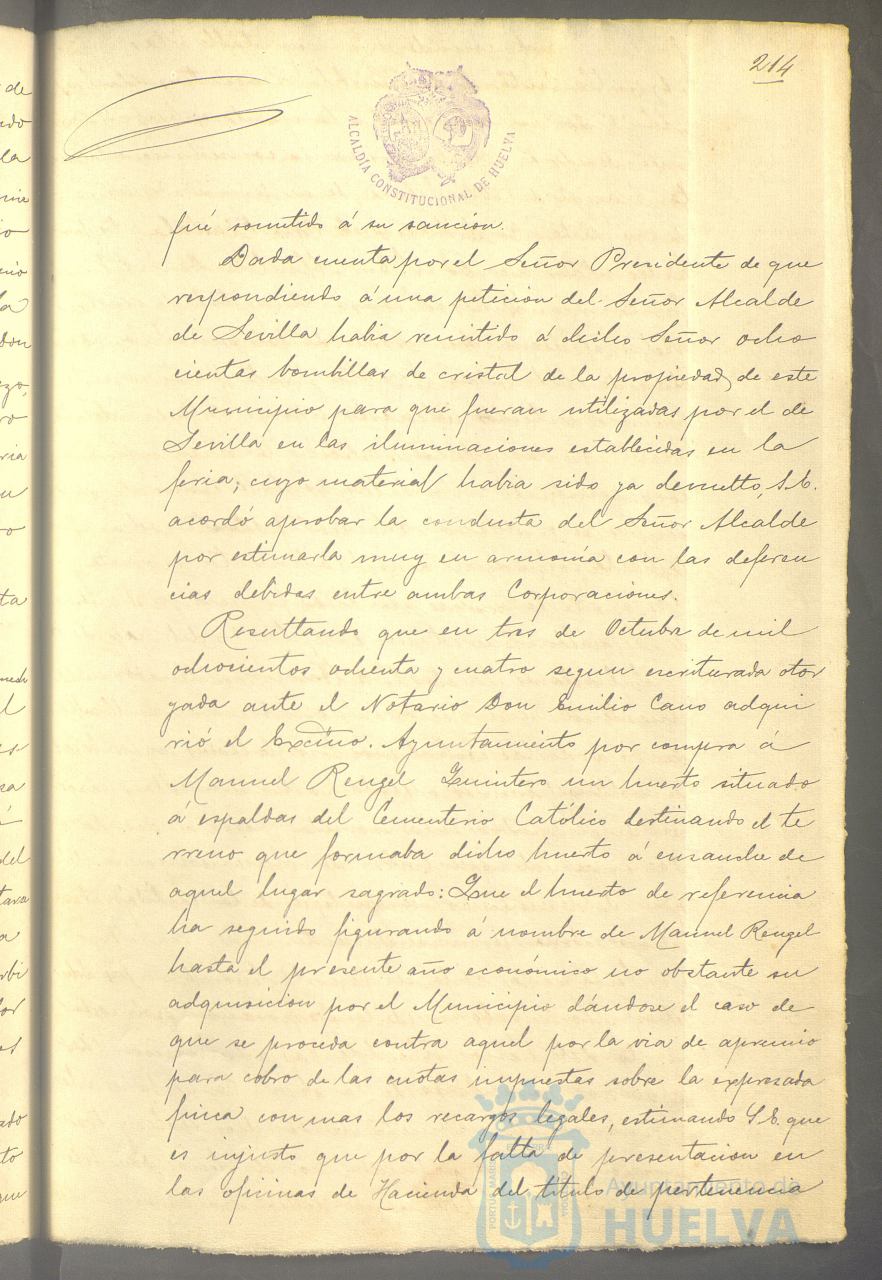 214
ALCALDÍA CONSTITUCIONAL DE HUELVA
fué sometido á su sancion.
Dada cuenta por el Señor Presidente de que
respondiendo á una peticion del Señor Alcalde
de Sevilla habia remitido á dicho Señor ocho
cientas bombillas de cristal de la propiedad de este
Municipio para que fueran utilizadas por el de
Sevilla en las iluminaciones establecidas en la
feria, cuyo material habia sido ya devuelto, S.E.
acordó aprobar la conducta del Señor Alcalde
por estimarla muy en armonía con las deferen
cias debidas entre ambas Corporaciones.
Resultando que en tres de Octubre de mil
ochocientos ochenta y cuatro segun escriturada otor
gada ante el Notario Don Emilio Cano adqui
rió el Excmo. Ayuntamiento por compra á
Manuel Rengel Quintero un huerto situado
á espaldas del Cementerio Católico destinando el te
rreno que formaba dicho huerto á ensanche de
aquel lugar sagrado: Que el huerto de referencia
ha seguido figurando á nombre de Manuel Rengel
hasta el presente año económico no obstante su
adquisicion por el Municipio dándose el caso de
que se proceda contra aquel por la via de apremio
para cobro de las cuotas impuestas sobre la expresada
finca con mas los recargos legales, estimando S.E. que
es injusto que por la falta de presentacion en
las oficinas de Hacienda del título de pertenencia
Ayuntamiento de
HUELVA